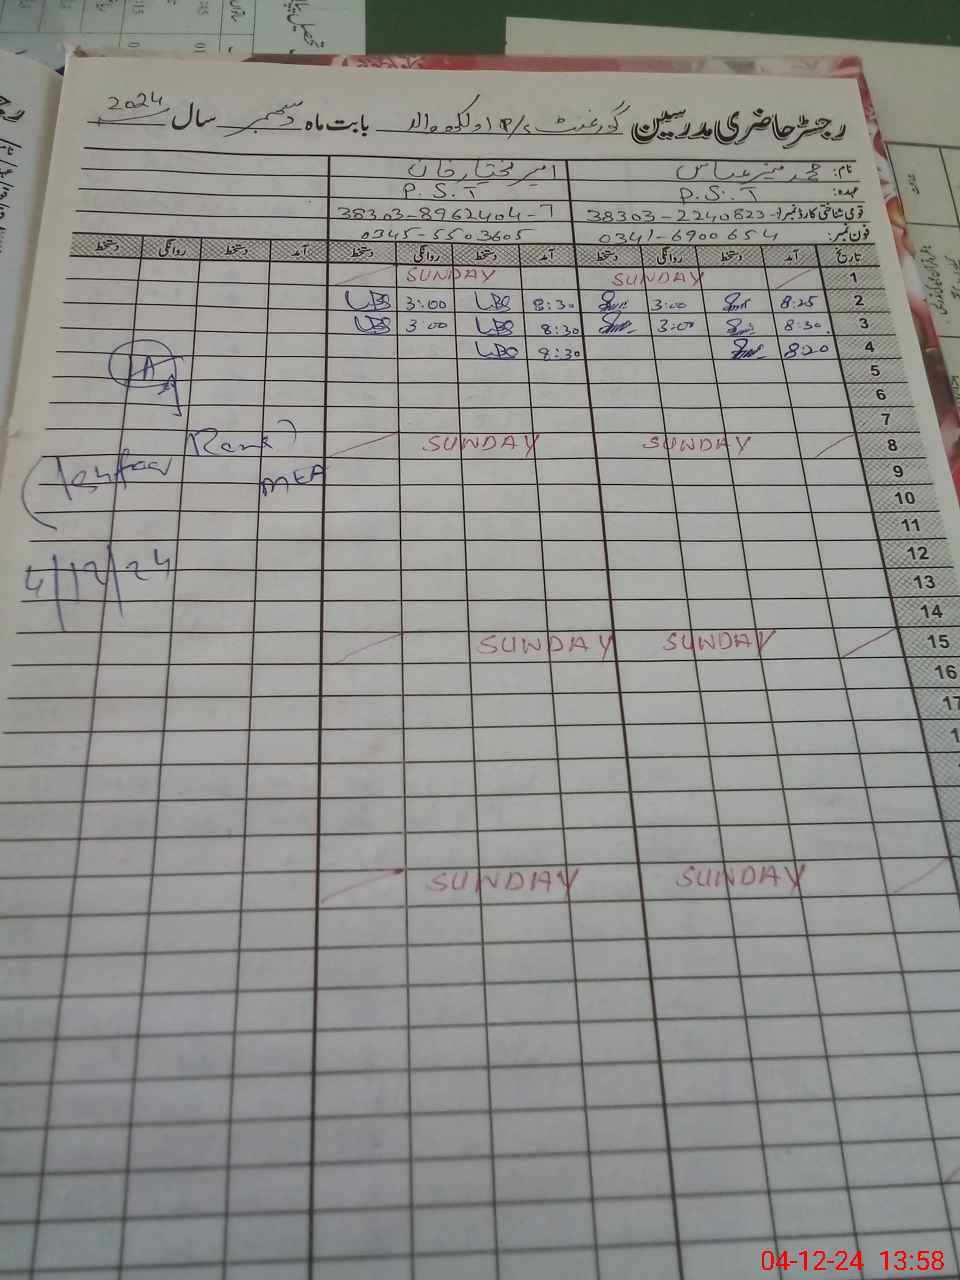 رجسٹر حاضری مدرسین گورنمنٹ P/S اولکھ والہ بابت ماہ دسمبر سال 2024
نام: محمد منیر عباس امیر مختیار خان
عہدہ: P.S.T P.S.T
قومی شناختی کارڈ نمبر: 38303-2240823-1 38303-8962404-7
فون نمبر: 0341-6900654 0345-5503605
تاریخ آمد دستخط روانگی دستخط آمد دستخط روانگی دستخط آمد دستخط روانگی دستخط
1 SUNDAY SUNDAY
2 8:25 3:00 8:30 3:00
3 8:30 3:00 8:30 3:00
4 8:20 8:30
5
6
7
8 SUNDAY SUNDAY
9 MEA
10
11
12
4/12/24
13
14
15 SUNDAY SUNDAY
16
17
SUNDAY SUNDAY
04-12-24 13:58